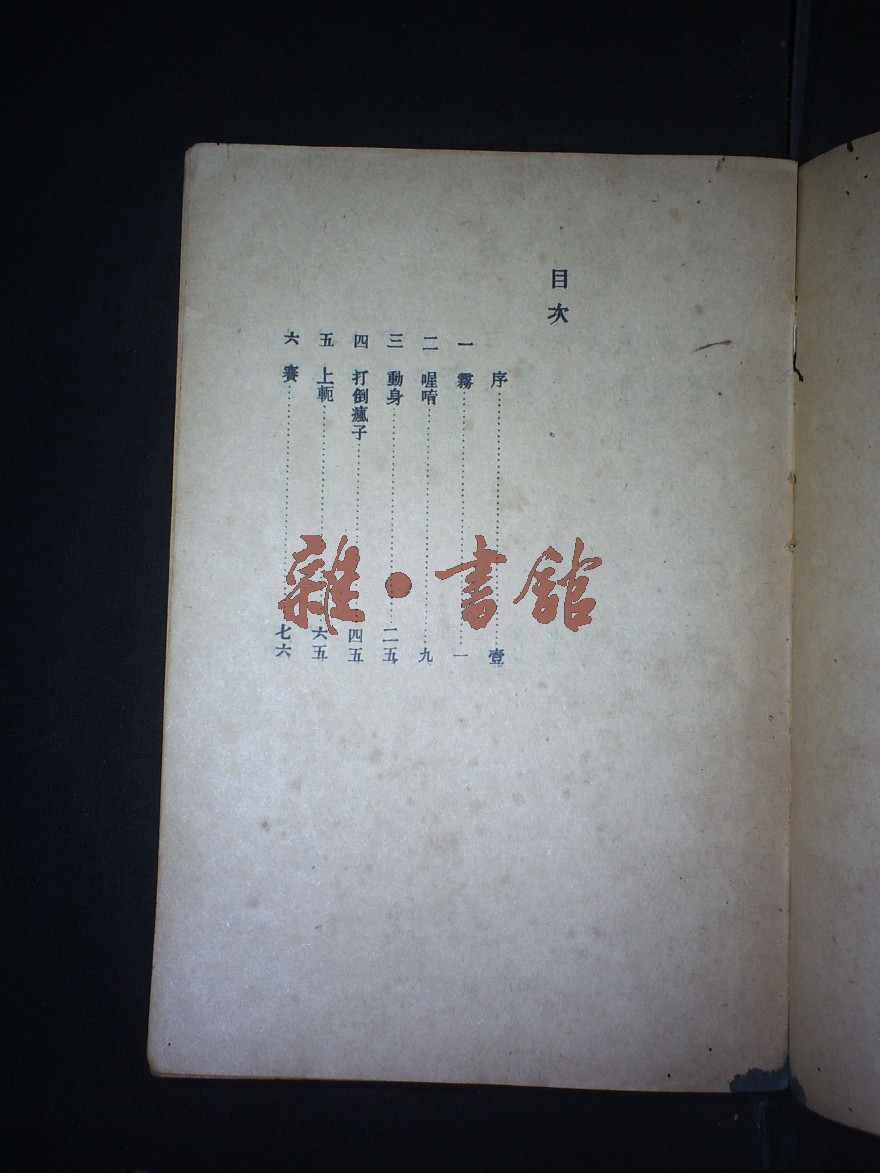 目次
序……壹
一 霧……一
二 喔唷……九
三 動身……二五
四 打倒瘋子……四五
五 上軛……六五
六 賽……七六
雜・書館